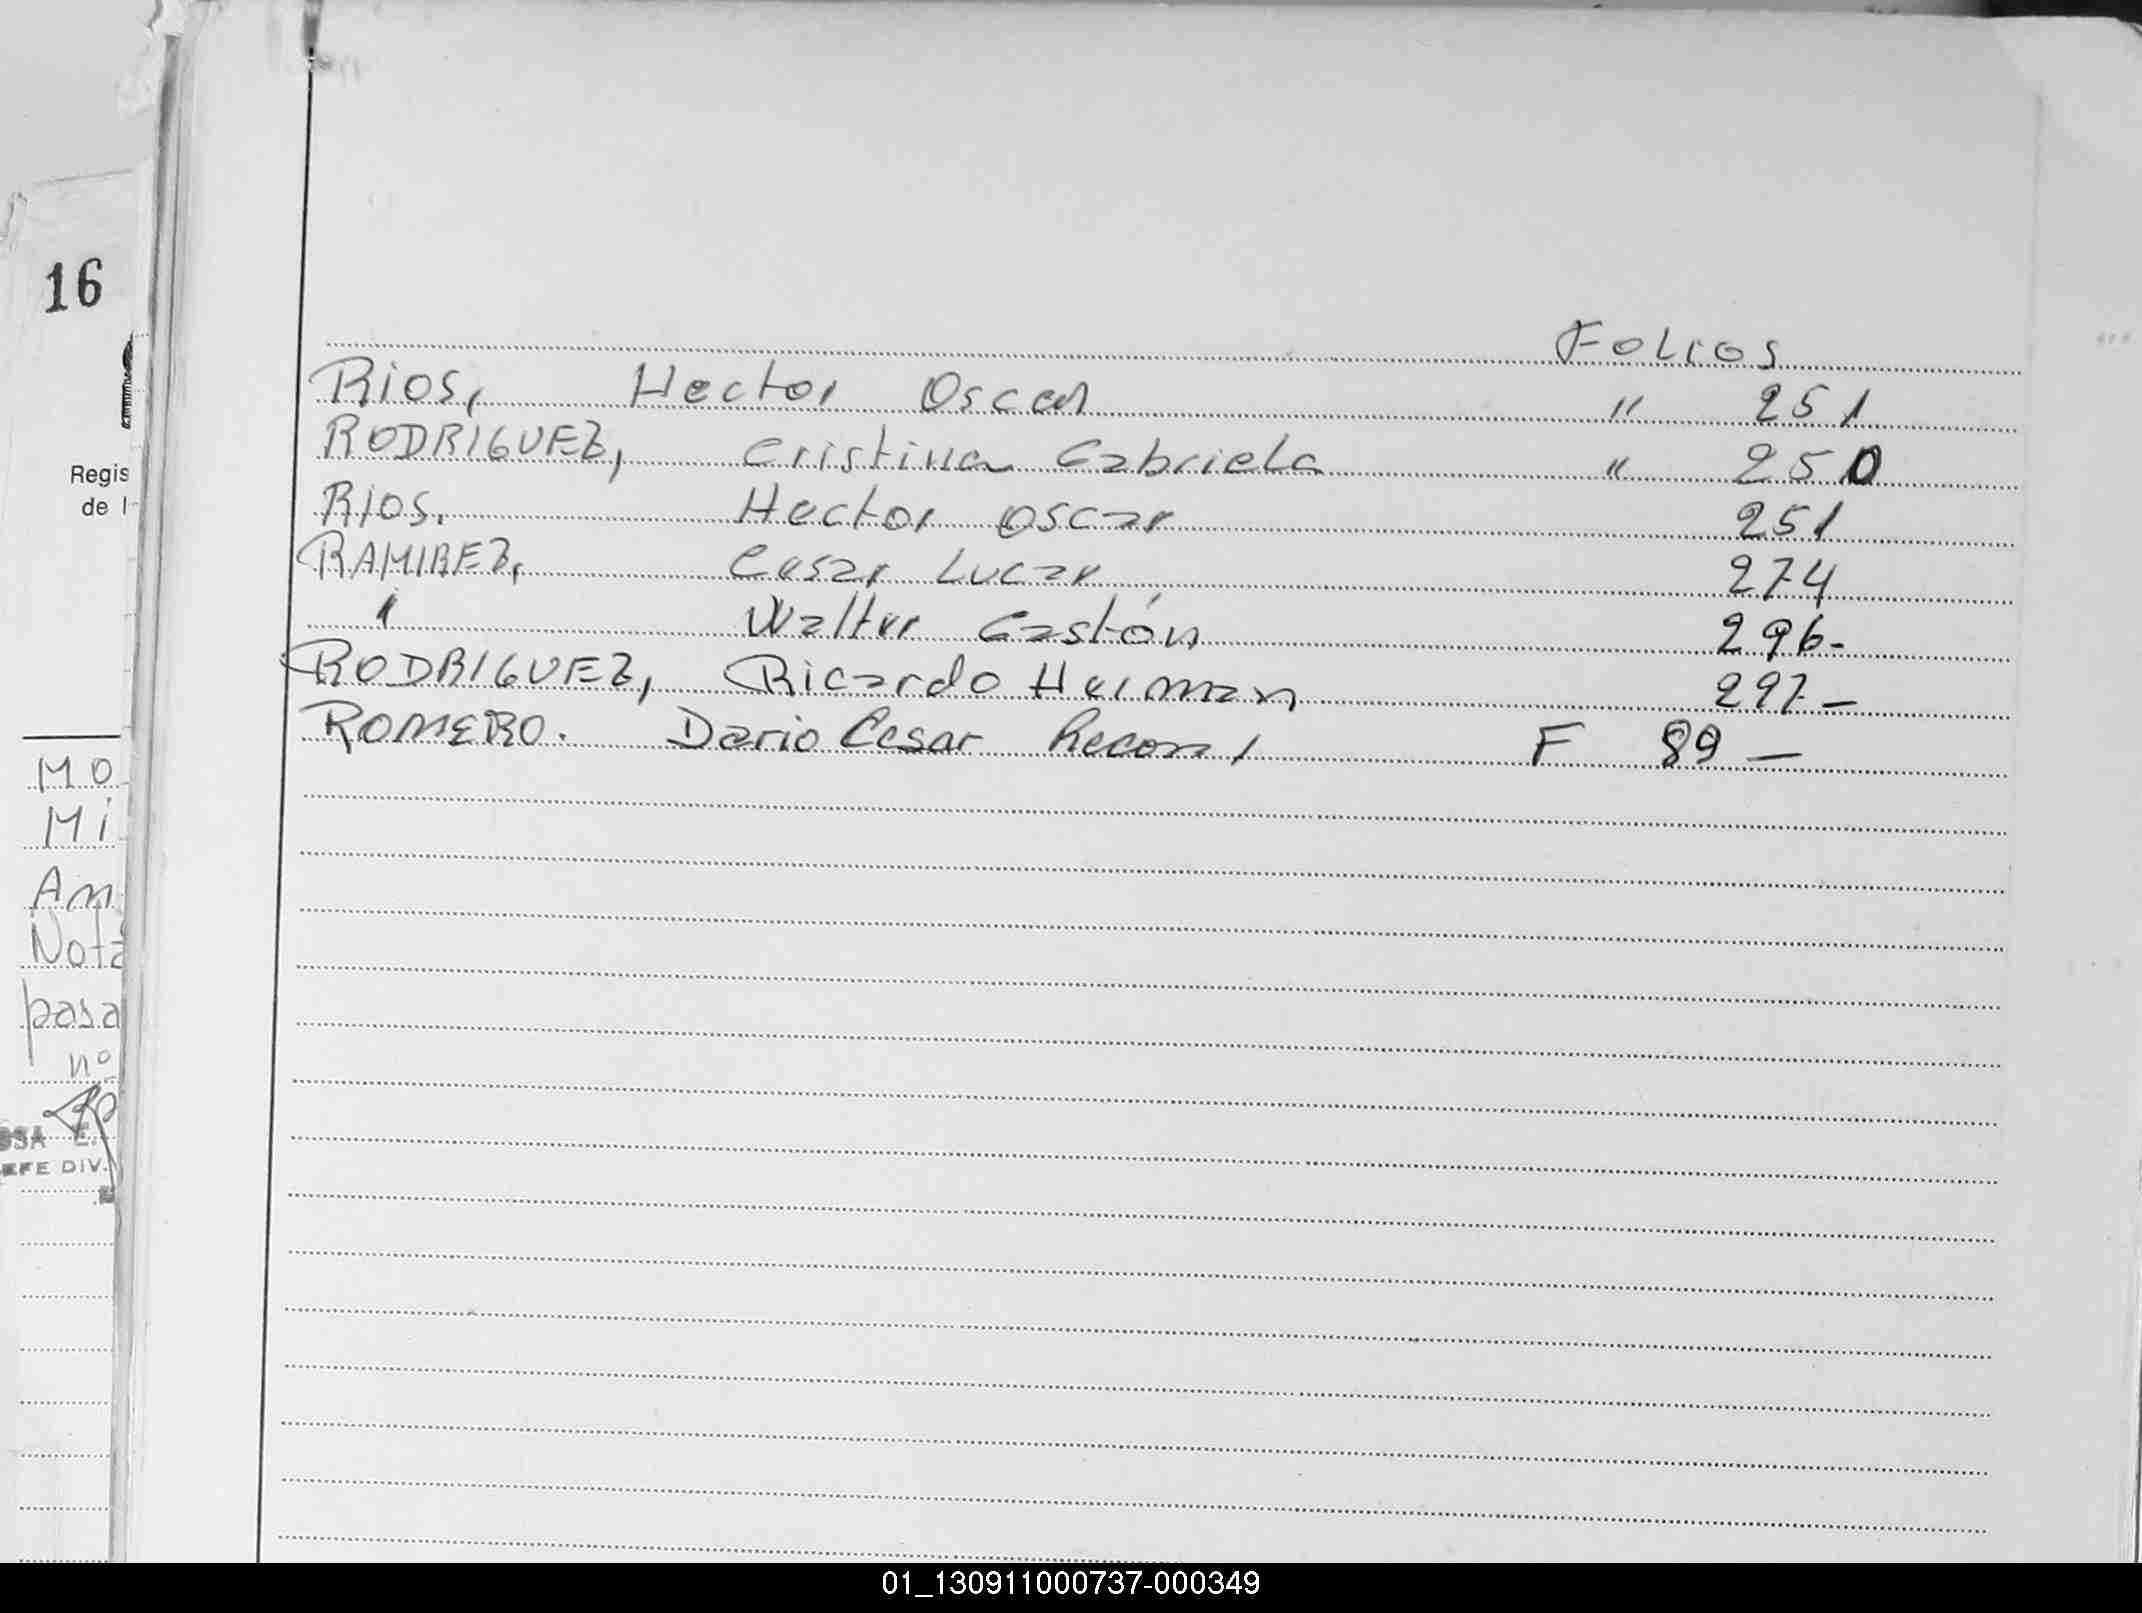 16
Regis
de l
Mo
Mi
Am
Nota
pasa
nº
OSA E.
EFE DIV.
Folios
Rios, Hector Oscar " 251
RODRIGUEZ, Cristina Gabriela " 250
RIOS. Hector Oscar 251
RAMIREZ, Cesar Lucas 274
" Walter Gastón 296-
RODRIGUEZ, Ricardo Herman 297-
ROMERO. Dario Cesar F 89 -
01_130911000737-000349